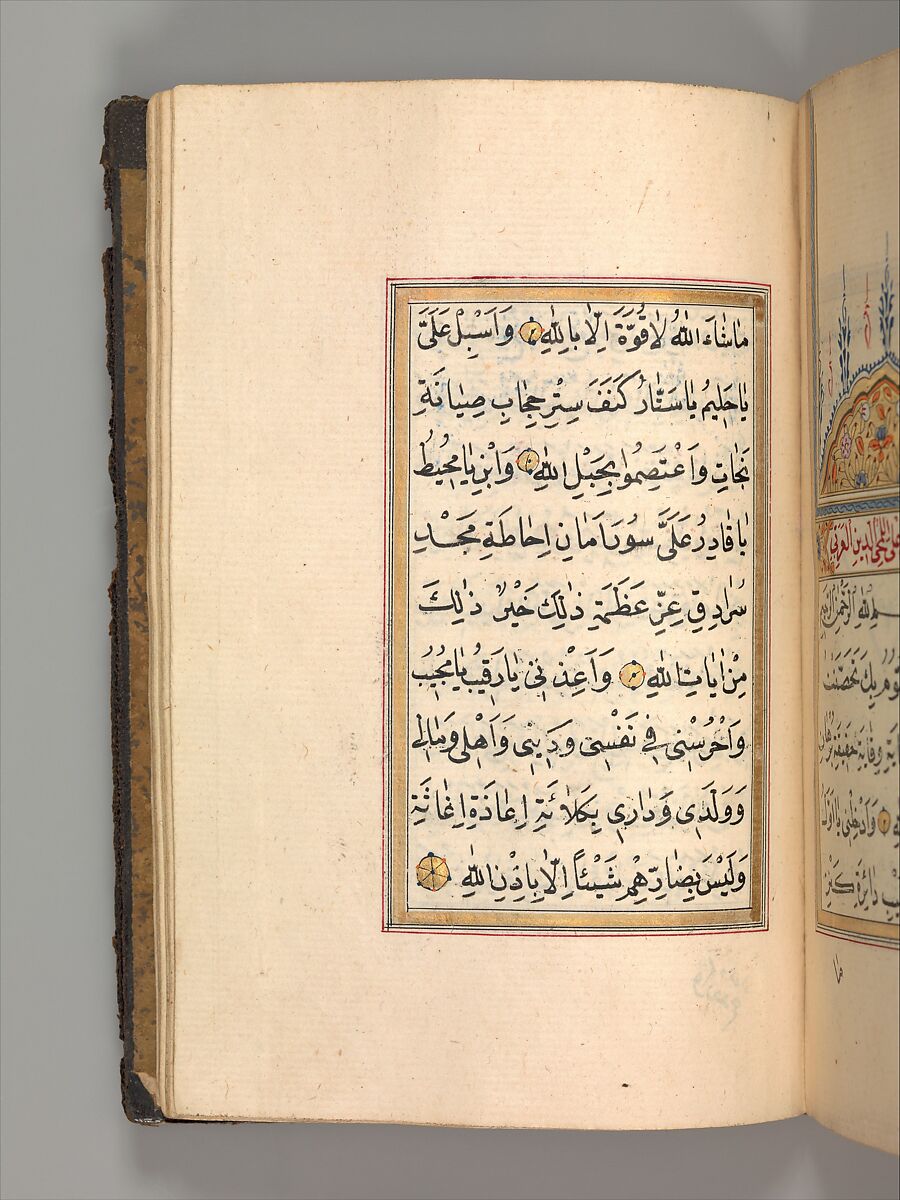 مَاشَاءَ اللّٰهُ لَا قُوَّةَ اِلَّا بِاللّٰهِ وَاَسْبِلْ عَلَىَّ
يَا حَلِيمُ يَا سَتَّارُ كَنَفَ سِتْرِ حِجَابِ صِيَانَةِ
نَجَاتِ وَاعْتَصِمُوا بِحَبْلِ اللّٰهِ وَابْنِ يَا مُحِيطُ
يَا قَادِرُ عَلَىَّ سُورَ اَمَانِ اِحَاطَةِ مَجْدِ
سُرَادِقِ عِزِّ عَظَمَةِ ذٰلِكَ خَيْرٌ ذٰلِكَ
مِنْ اٰيَاتِ اللّٰهِ وَاَعِذْنِى يَا رَقِيبُ يَا مُجِيبُ
وَاحْرُسْنِى فِى نَفْسِى وَدِينِى وَاَهْلِى وَمَالِى
وَوَلَدِى وَدَارِى بِكَلَائَةِ اِعَاذَةِ اِغَاثَةِ
وَلَيْسَ بِضَارِّهِمْ شَيْئًا اِلَّا بِاِذْنِ اللّٰهِ